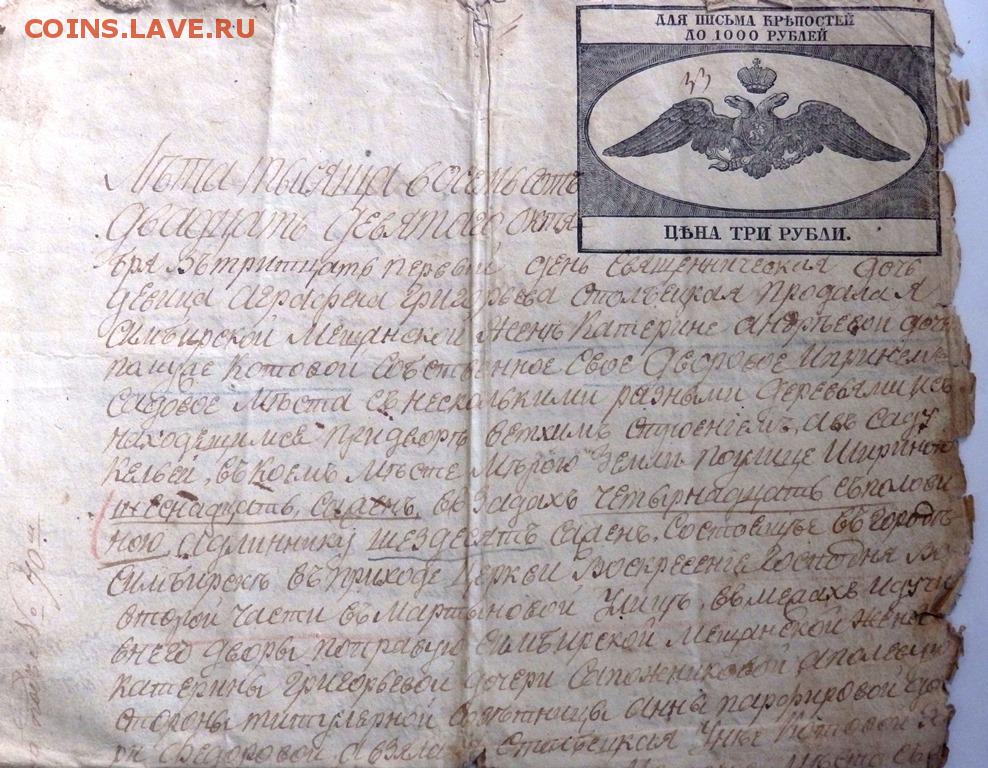 COINS.LAVE.RU
ДЛЯ ПИСЬМА КРѢПОСТЕЙ
ДО 1000 РУБЛЕЙ
ЦѢНА ТРИ РУБЛИ.
Лѣта тысяща восемьсотъ
двадцать девятаго октя
бря въ тритцать первый день священническая дочь
девица Аграфена Григорьева Столѣцкая продала я
симбирской мещанской женѣ Катерине Андрѣевой доч
Котовой собственное свое дворовое и
садовое мѣста съ несколькими разными деревьями и съ
находящимся при дворѣ ветхимъ строениемъ, а въ саду
кельей, въ коемъ мѣсте мѣрою земли по улице ширино
шеснадцать сажень, въ задахъ четырнадцать съ полови
ною а длиннику шездесятъ сажень, состоящъе въ городѣ
Симбирскѣ въ приходе церкви Воскресение Господня во
второй части въ Мартыновой улицѣ, въ межахъ
дворы по правую симбирской мещанской жены
Катерины Григорьевой дочери Сапожниковой а по левую
стороны титулярной советницы Анны Парфировой до
ри Федоровой, а взяла я Столѣцкая у нее Котовой